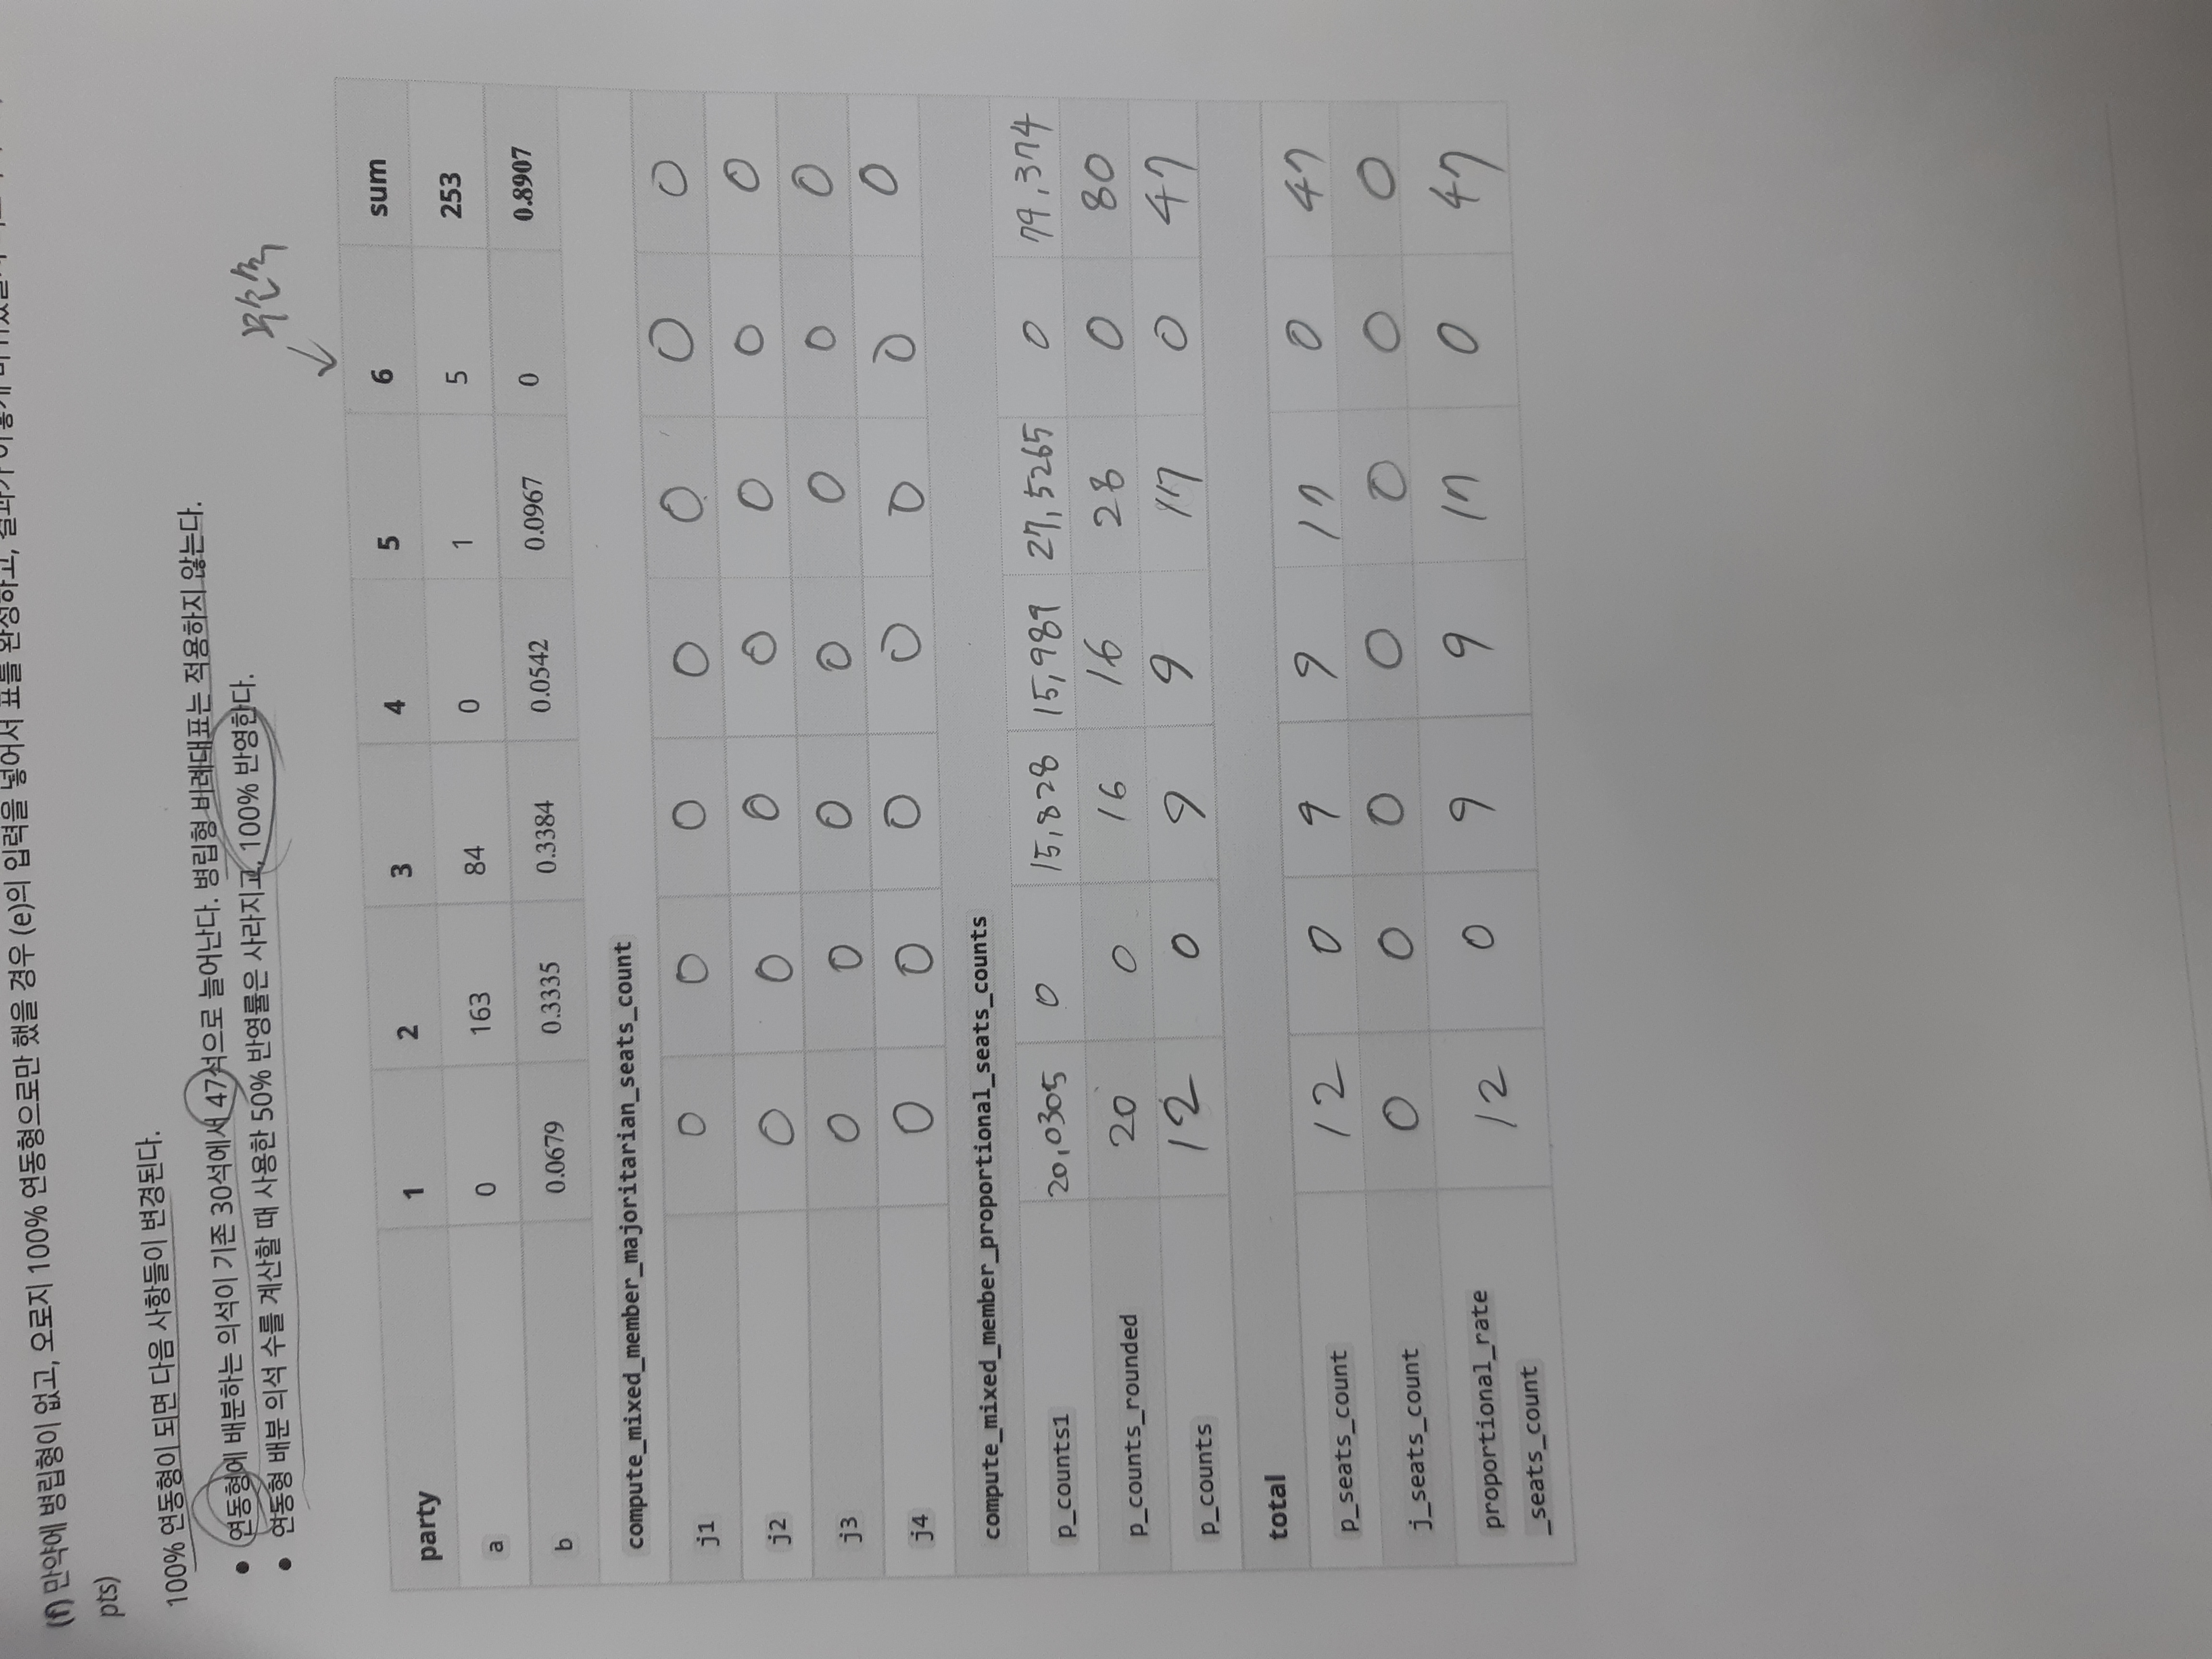 (f) 만약에 병립형이 없고, 오로지 100% 연동형으로만 했을 경우 (e)의 입력을 넣어서 표를 완성하고, 결과가
pts)
100% 연동형이 되면 다음 사항들이 변경된다.
• 연동형에 배분하는 의석이 기존 30석에서 47석으로 늘어난다. 병립형 비례대표는 적용하지 않는다.
• 연동형 배분 의석 수를 계산할 때 사용한 50% 반영률은 사라지고, 100% 반영한다.
무소속
party 1 2 3 4 5 6 sum
a 0 163 84 0 1 5 253
b 0.0679 0.3335 0.3384 0.0542 0.0967 0 0.8907
compute_mixed_member_majoritarian_seats_count
j1 0 0 0 0 0 0 0
j2 0 0 0 0 0 0 0
j3 0 0 0 0 0 0 0
j4 0 0 0 0 0 0 0
compute_mixed_member_proportional_seats_counts
p_counts1 20,0305 0 15,828 15,989 27,5265 0 79,374
p_counts_rounded 20 0 16 16 28 0 80
p_counts 12 0 9 9 17 0 47
total
p_seats_count 12 0 9 9 17 0 47
j_seats_count 0 0 0 0 0 0 0
proportional_rate 12 0 9 9 17 0 47
_seats_count